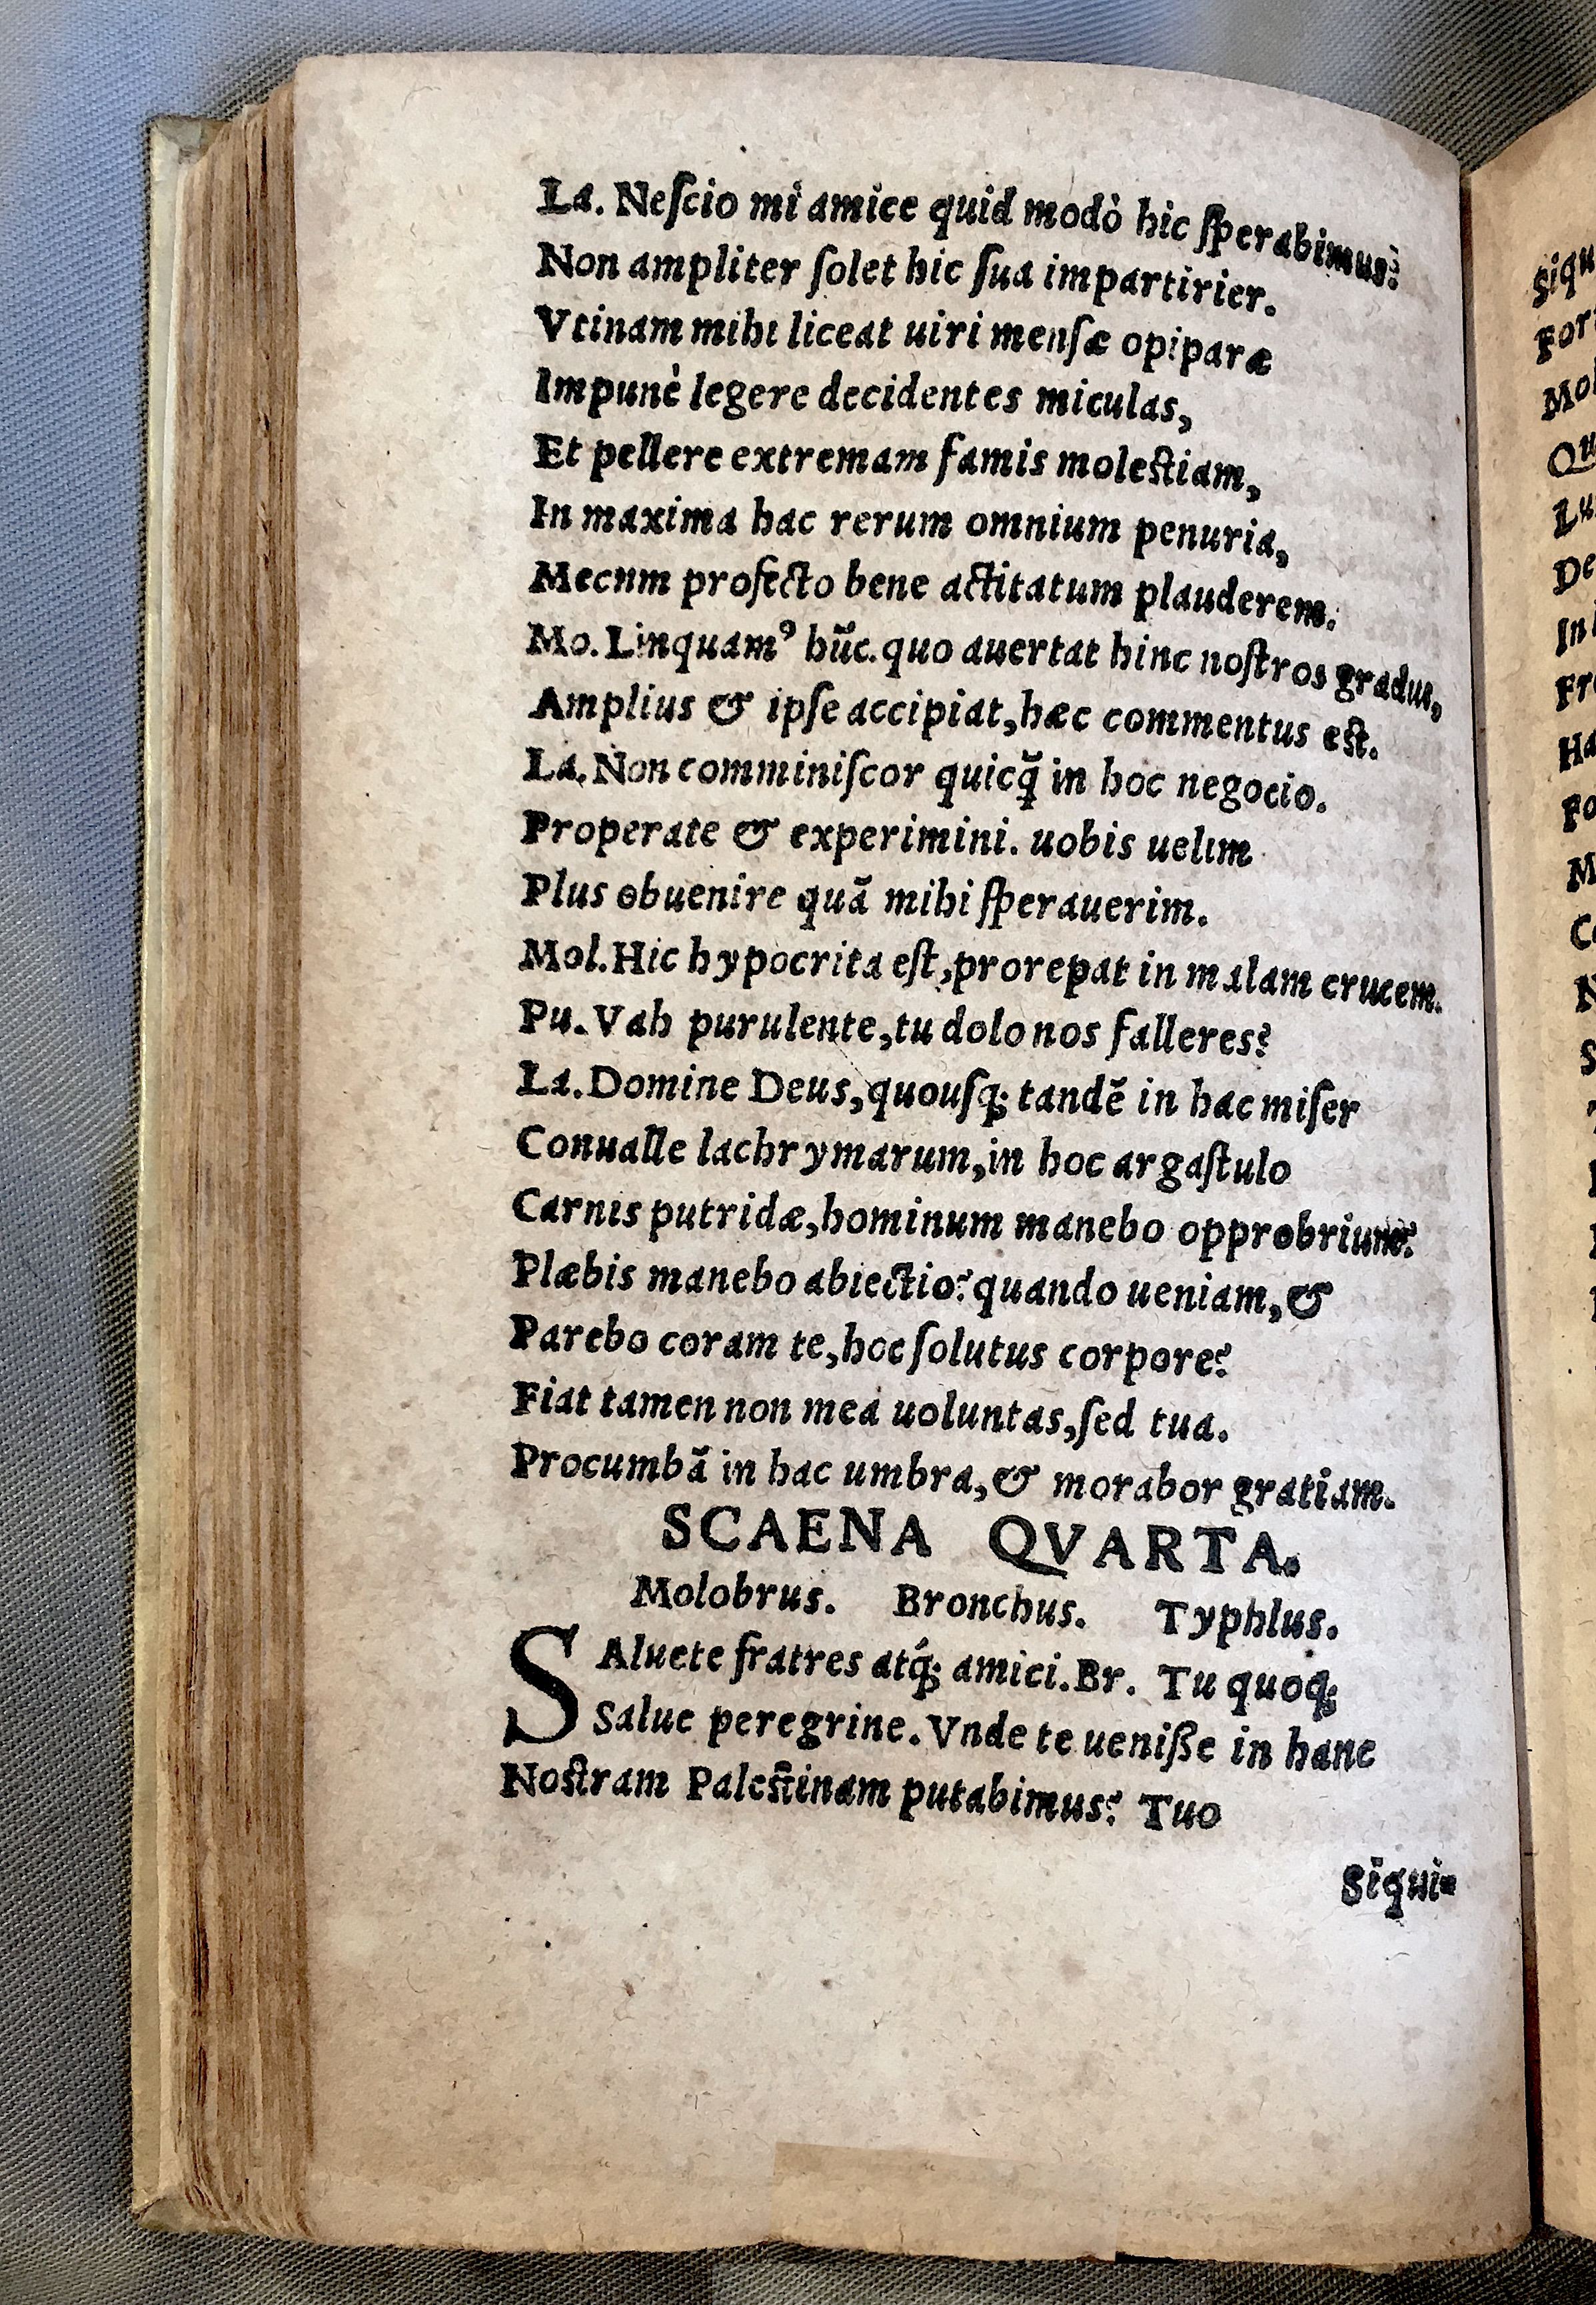 La. Neſcio mi amice quid modò hic ſperabimus?
Non ampliter ſolet hic ſua impartirier.
Vtinam mihi liceat uiri menſæ opiparæ
Impunè legere decidentes miculas,
Et pellere extremam famis moleſtiam,
In maxima hac rerum omnium penuria,
Mecnm profecto bene actitatum plauderem.
Mo. Linquamꝰ hūc. quo auertat hinc noſtros gradus,
Amplius & ipſe accipiat, hæc commentus eſt.
La. Non comminiſcor quicq̃ in hoc negocio.
Properate & experimini. uobis uelim
Plus obuenire quā mihi ſperauerim.
Mol. Hic hypocrita eſt, prorepat in malam crucem.
Pu. Vah purulente, tu dolo nos falleres?
La. Domine Deus, quouſq; tandē in hac miſer
Conualle lachrymarum, in hoc argaſtulo
Carnis putridæ, hominum manebo opprobrium?
Plæbis manebo abiectio? quando ueniam, &
Parebo coram te, hoc ſolutus corpore?
Fiat tamen non mea uoluntas, ſed tua.
Procumbā in hac umbra, & morabor gratiam.
SCAENA QVARTA.
Molobrus. Bronchus. Typhlus.
SAluete fratres atq́; amici. Br. Tu quoq;
Salue peregrine. Vnde te ueniße in hanc
Noſtram Paleſtinam putabimus? Tuo
Siqui=
Siqu
For
Mol
Qu
Lu
De
In
Fr
Ha
Fo
M
Co
N
S